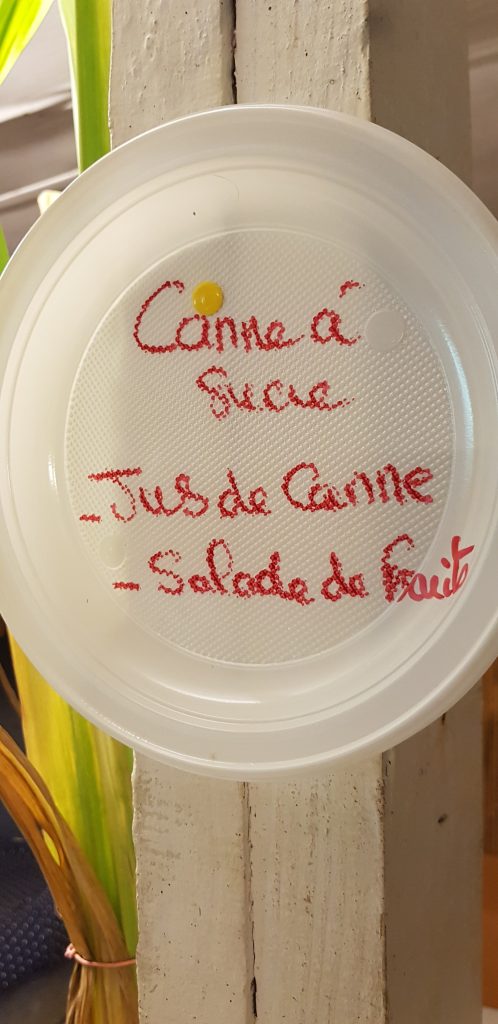 Canne á
Sucre
- Jus de Canne
- Salade de Fruits